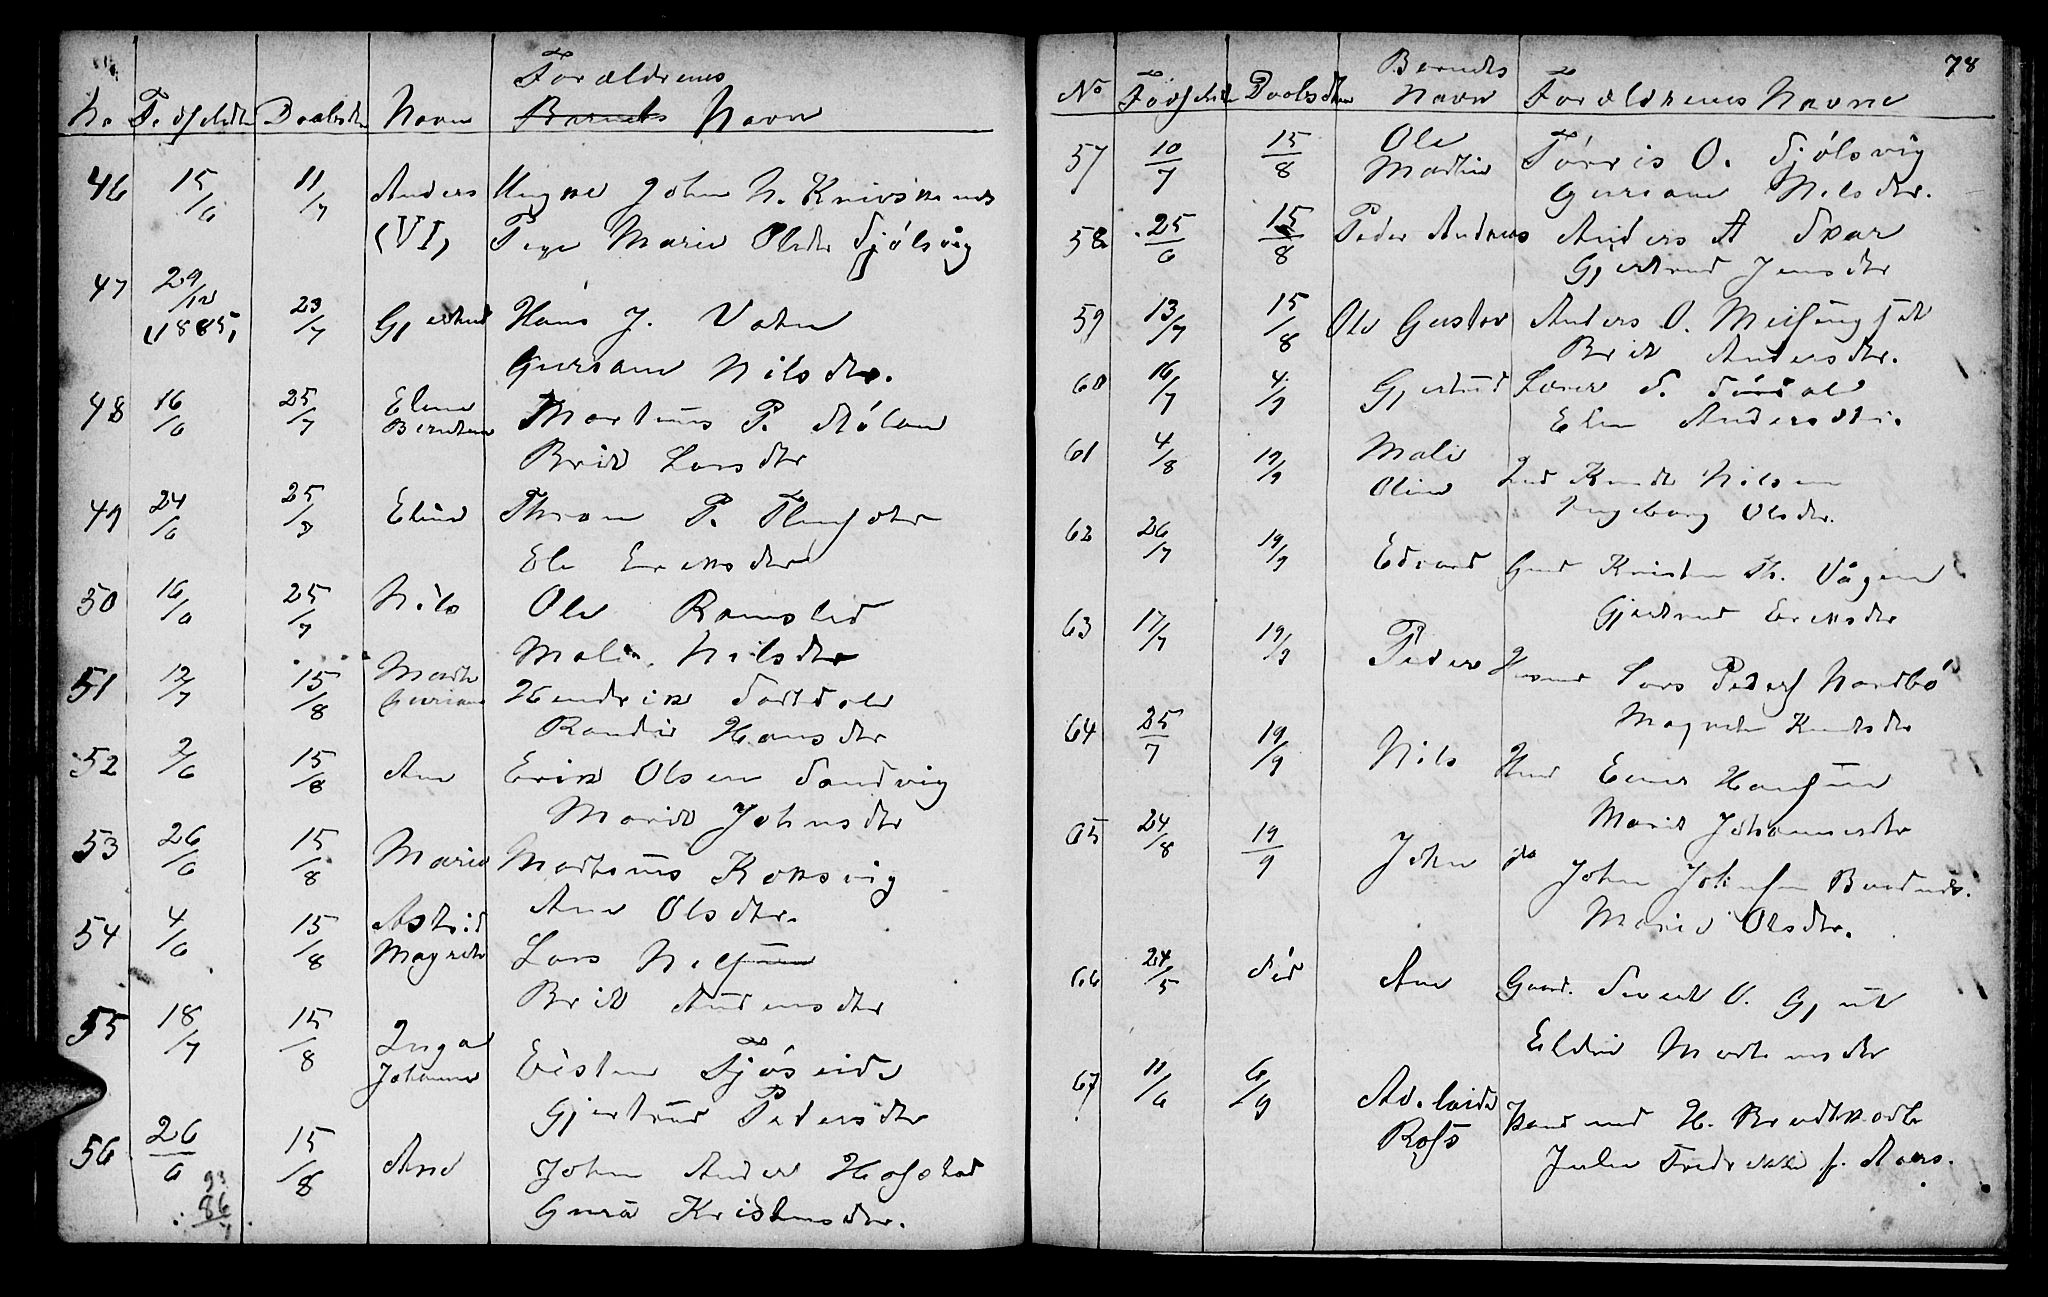 Forældrenes
No Fødselsdt Daabsdtn Navn Barnets Navn
46 15/6 11/7 Anders Ungkr John N. Knivsnes
(VI) Pige Marie Olsdtr Fjølsvig
47 29/12 (1885) 23/7 Gjertrud Hans J. Vatn
Guriane Nilsdtr.
48 16/6 25/7 Eline Berntine Martinus P.
Brit Larsdtr
49 24/6 25/7 Elind Thron P.
Eli Eriksdtr
50 16/6 25/7 Nils Ole Ramslid
Mali Nilsdtr
51 12/7 15/8 Marte Guriane Hendrik
Randi Hansdtr
52 2/6 15/8 Ane Erik Olsen Sandvig
Marit Johnsdtr
53 26/6 15/8 Marie Martinus Koksvig
Ane Olsdtr.
54 4/6 15/8 Astrid Magrete Lars Nilsen
Brit Andersdtr
55 18/7 15/8 Inga Johanna Eisten Fjøseide
Gjertrud Pedersdtr
56 26/6 15/8 Ane John Anders Hofstad
Gurå Kristensdtr.
93
86
7
78
Barnets
No Fødselsdtn Daabsdtn Navn Forældrenes Navne
57 10/7 15/8 Ole Martin Tørris O. Fjølsvig
Guriane Nilsdtr.
58 25/6 15/8 Peder Andreas Anders A Skar
Gjertrud Jensdtr
59 13/7 15/8 Ole Gustav Anders O. Meisingset
Brit Andersdtr.
60 16/7 4/9 Gjertrud S.
Elen Andersdtr.
61 4/8 19/9 Mali Oline Ind Knudt Nilsen
Ingeborg Olsdtr.
62 26/7 19/9 Edvard Gmd Kristen Th. Vågen
Gjertrud Eriksdtr
63 17/7 19/9 Peder Husmd Lars Peders Nordbø
Magrete Knudsdtr
64 25/7 19/9 Nils Hmd Einer Hansen
Marit Johannesdtr
65 24/8 19/9 John do John Johnsen
Marit Olsdtr.
66 24/5 død Ane Gaard. Sivert O. Gjul
Eldri Martinusdtr
67 11/6 6/9 Adelaide Rosa H.
Julie Fredrikke f. Aars.